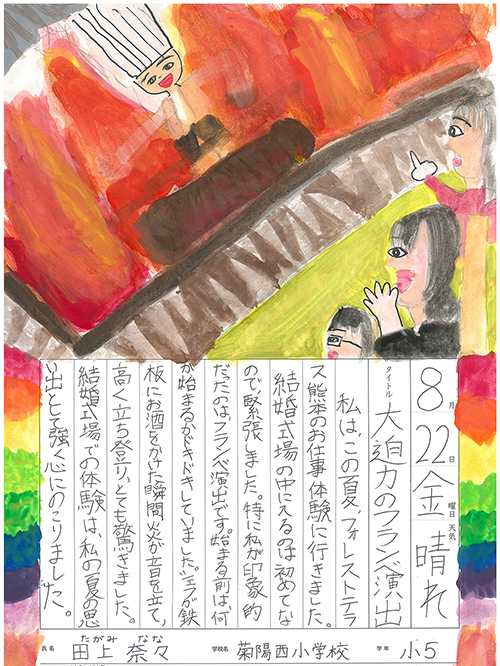 8月22日金曜日 天気 晴れ
タイトル 大迫力のフランベ演出
私は、この夏、フォレストテラ
ス熊本のお仕事体験に行きました。
結婚式場の中に入るのは初めてな
ので緊張しました。特に私が印象的
だったのはフランベ演出です。始まる前は、何
が始まるかドキドキしていました。シェフが鉄
板にお酒をかけた瞬間炎が音を立て、
高く立ち登り、とても驚きました。
結婚式場での体験は、私の夏の思
い出として強く心にのこりました。
氏名 田上 奈々 たがみ なな 学校名 菊陽西小学校 学年 小5